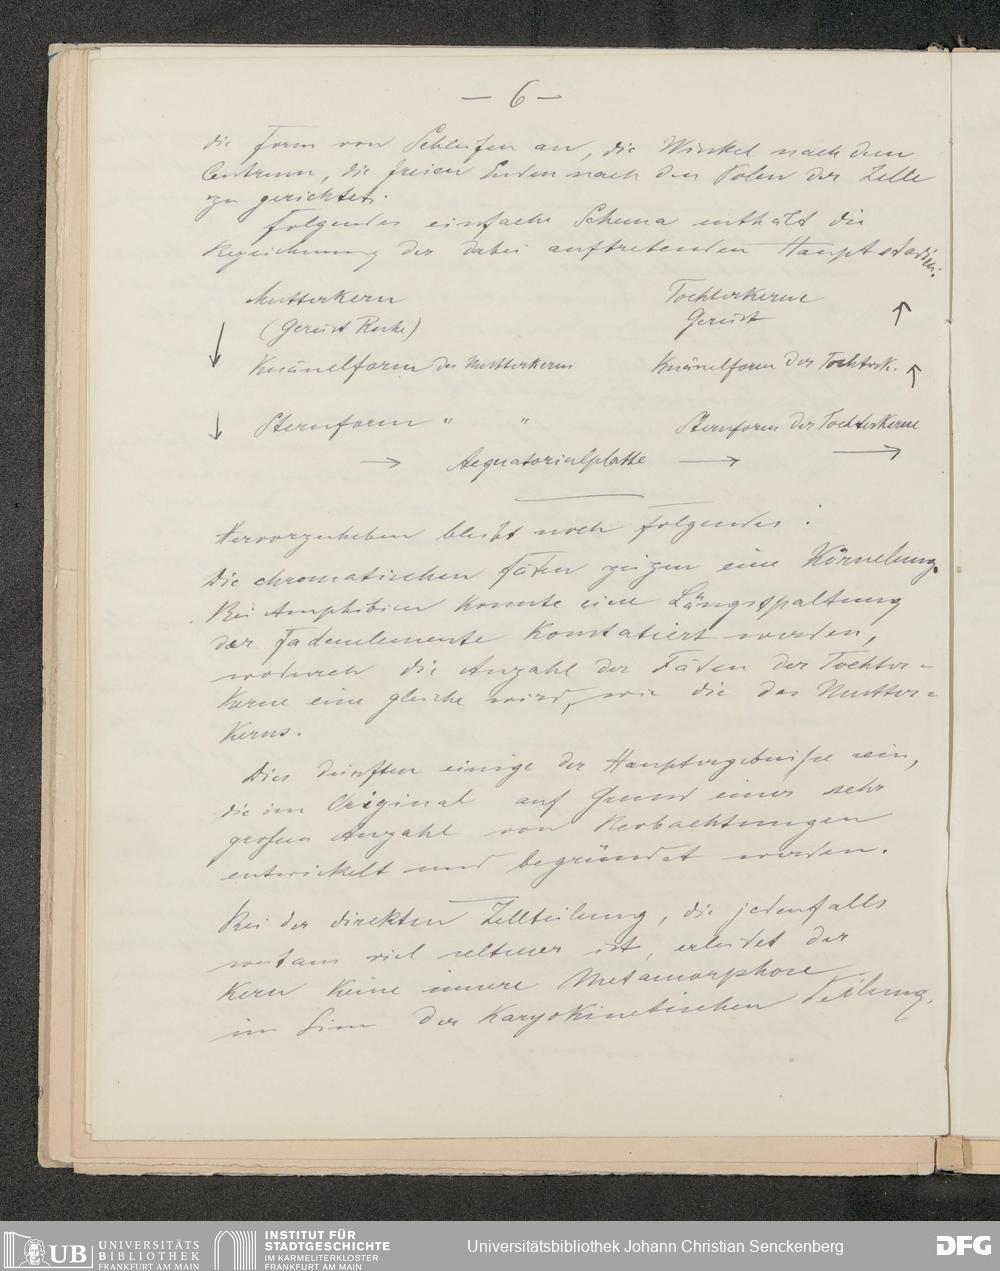 — 6 —
die Form von Schleifen an, die Winkel nach dem
Centrum, die freien Enden nach den Polen der Zelle
zu gerichtet.
Folgendes einfache Schema enthält die
Bezeichnung der dabei auftretenden Hauptstadien:
Mutterkern
Tochterkerne
(Gerüst Ruhe)
Gerüst
Knäuelform des Mutterkerns
Knäuelform der Tochterk.
Sternform " "
Sternform der Tochterkerne
→ Aequatorialplatte → →
Hervorzuheben bleibt noch folgendes:
Die chromatischen Fäden zeigen eine Körnelung.
Bei Amphibien konnte eine Längsspaltung
der Fadenelemente konstatiert werden,
wodurch die Anzahl der Fäden der Tochter-
kerne eine gleiche wird, wie die des Mutter-
kerns.
Dies dürften einige der Hauptergebnisse sein,
die im Original auf Grund einer sehr
großen Anzahl von Beobachtungen
entwickelt und begründet werden.
Bei der direkten Zellteilung, die jedenfalls
weitaus viel seltener ist, erleidet der
Kern keine innere Metamorphose
im Sinn der Karyokinetischen Teilung.
UB UNIVERSITÄTS
BIBLIOTHEK
FRANKFURT AM MAIN
INSTITUT FÜR
STADTGESCHICHTE
IM KARMELITERKLOSTER
FRANKFURT AM MAIN
Universitätsbibliothek Johann Christian Senckenberg
DFG